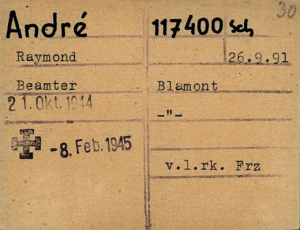 30
André 117400 Sch
Raymond 26.9.91
Beamter Blamont
21. Okt. 1944 -"-
-8. Feb. 1945
v.l.rk. Frz